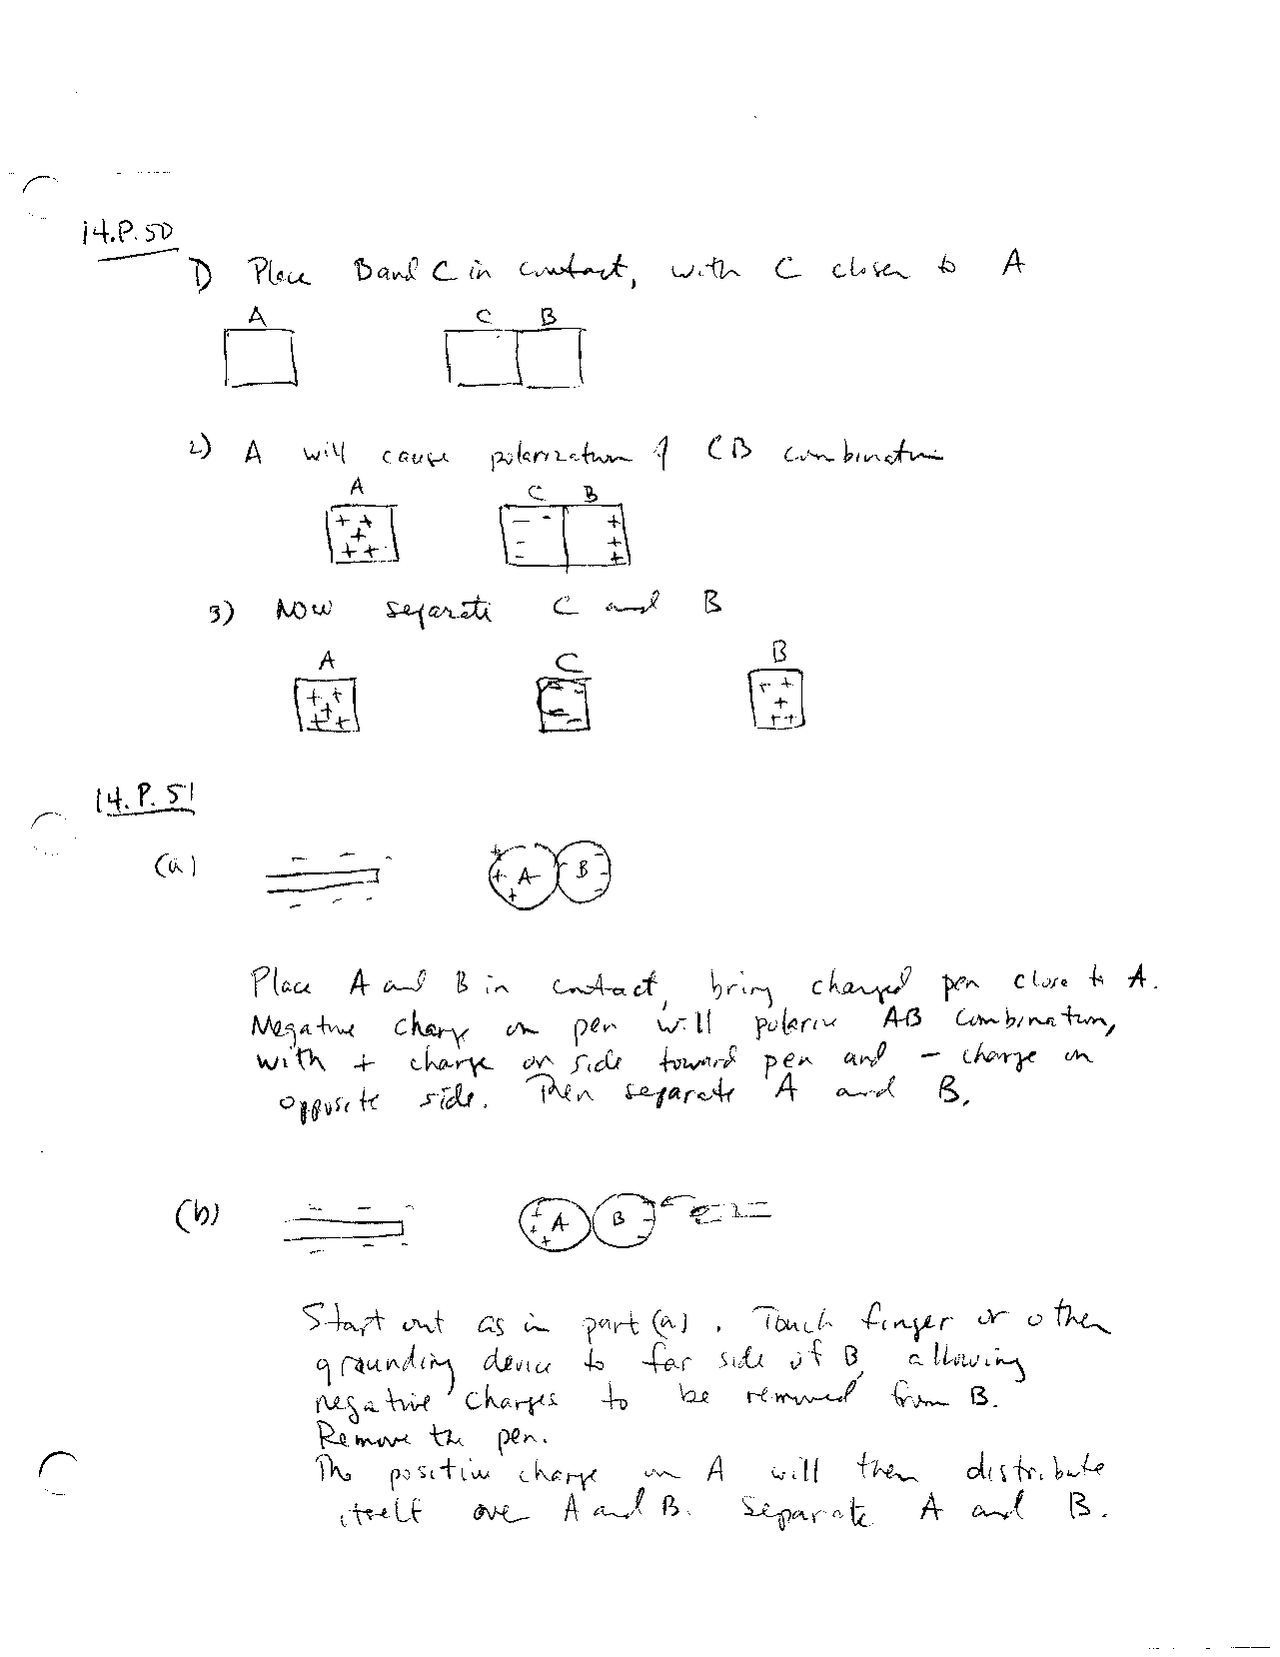 14.P.50
1) Place B and C in contact, with C closer to A
A C B
2) A will cause polarization of CB combination
A C B
+ + + + + - - - - + + +
3) Now separate C and B
A C B
+ + + + + - - - - + + + + +
14.P.51
(a) - - - - - - + + + A B - - -
Place A and B in contact, bring charged pen close to A.
Negative charge on pen will polarize AB combination,
with + charge on side toward pen and - charge on
opposite side. Then separate A and B.
(b) - - - - - - + + + A B - - -
Start out as in part (a). Touch finger or other
grounding device to far side of B, allowing
negative charges to be removed from B.
Remove the pen.
The positive charge on A will then distribute
itself over A and B. Separate A and B.